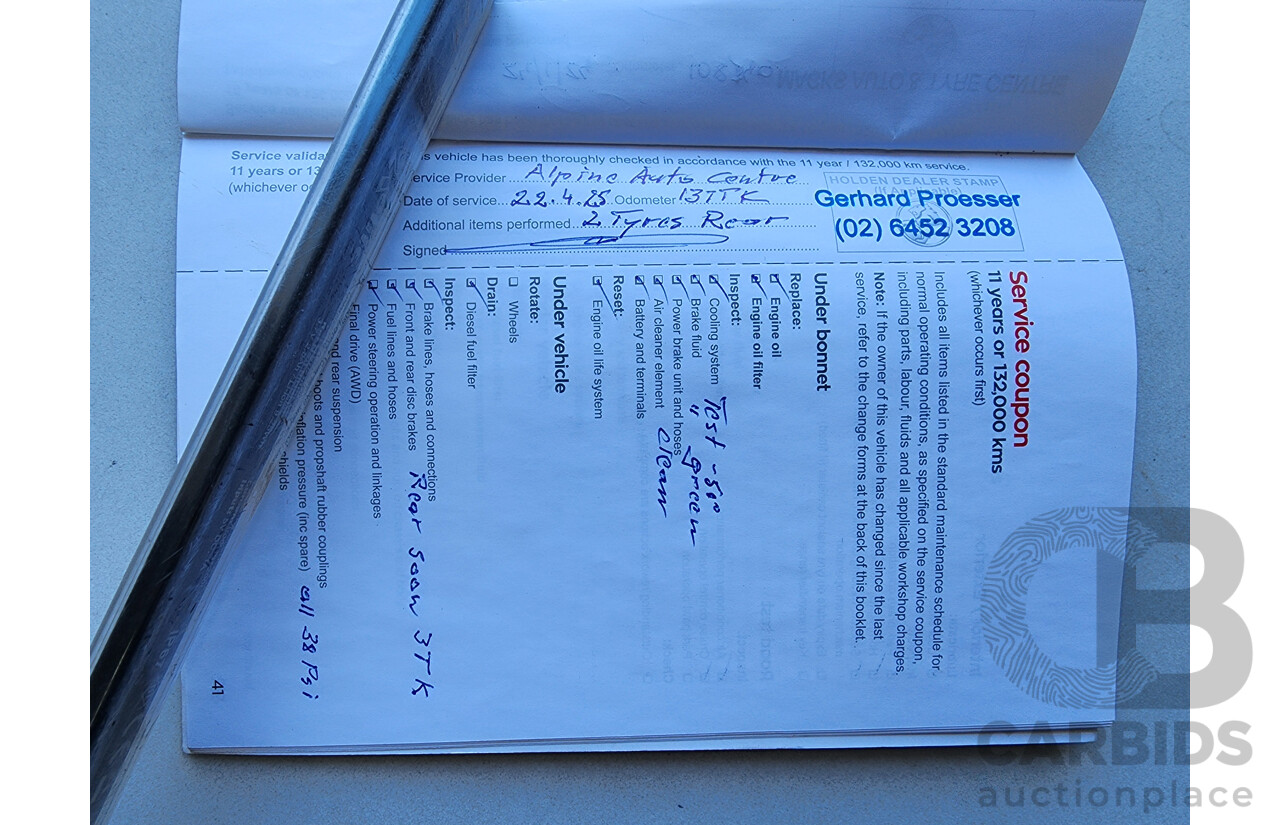 Service valida
11 years or 13
(whichever o
s vehicle has been thoroughly checked in accordance with the 11 year / 132,000 km service.
ervice Provider Alpine Auto Centre
Date of service 22.4.25 Odometer 137TK
Additional items performed 2 Tyres Rear
Signed
HOLDEN DEALER STAMP
Gerhard Proesser
(02) 6452 3208
Service coupon
11 years or 132,000 kms
(whichever occurs first)
Includes all items listed in the standard maintenance schedule for
normal operating conditions, as specified on the service coupon,
including parts, labour, fluids and all applicable workshop charges.
Note: If the owner of this vehicle has changed since the last
service, refer to the change forms at the back of this booklet.
Under bonnet
Replace:
Engine oil
Engine oil filter
Inspect:
Cooling system Test -50°
Brake fluid " green
Power brake unit and hoses
Air cleaner element clean
Battery and terminals
Reset:
Engine oil life system
Under vehicle
Rotate:
Wheels
Drain:
Diesel fuel filter
Inspect:
Brake lines, hoses and connections
Front and rear disc brakes Rear soon 3TK
Fuel lines and hoses
Power steering operation and linkages
Final drive (AWD)
nd rear suspension
boots and propshaft rubber couplings
nflation pressure (inc spare) all 38 Psi
hields
41
CB
CARBIDS
auctionplace